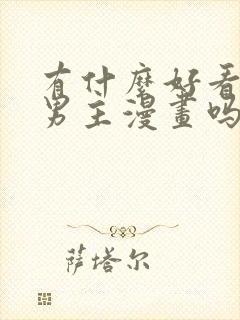 有什麼好看
男主漫畫吗
萨塔尔